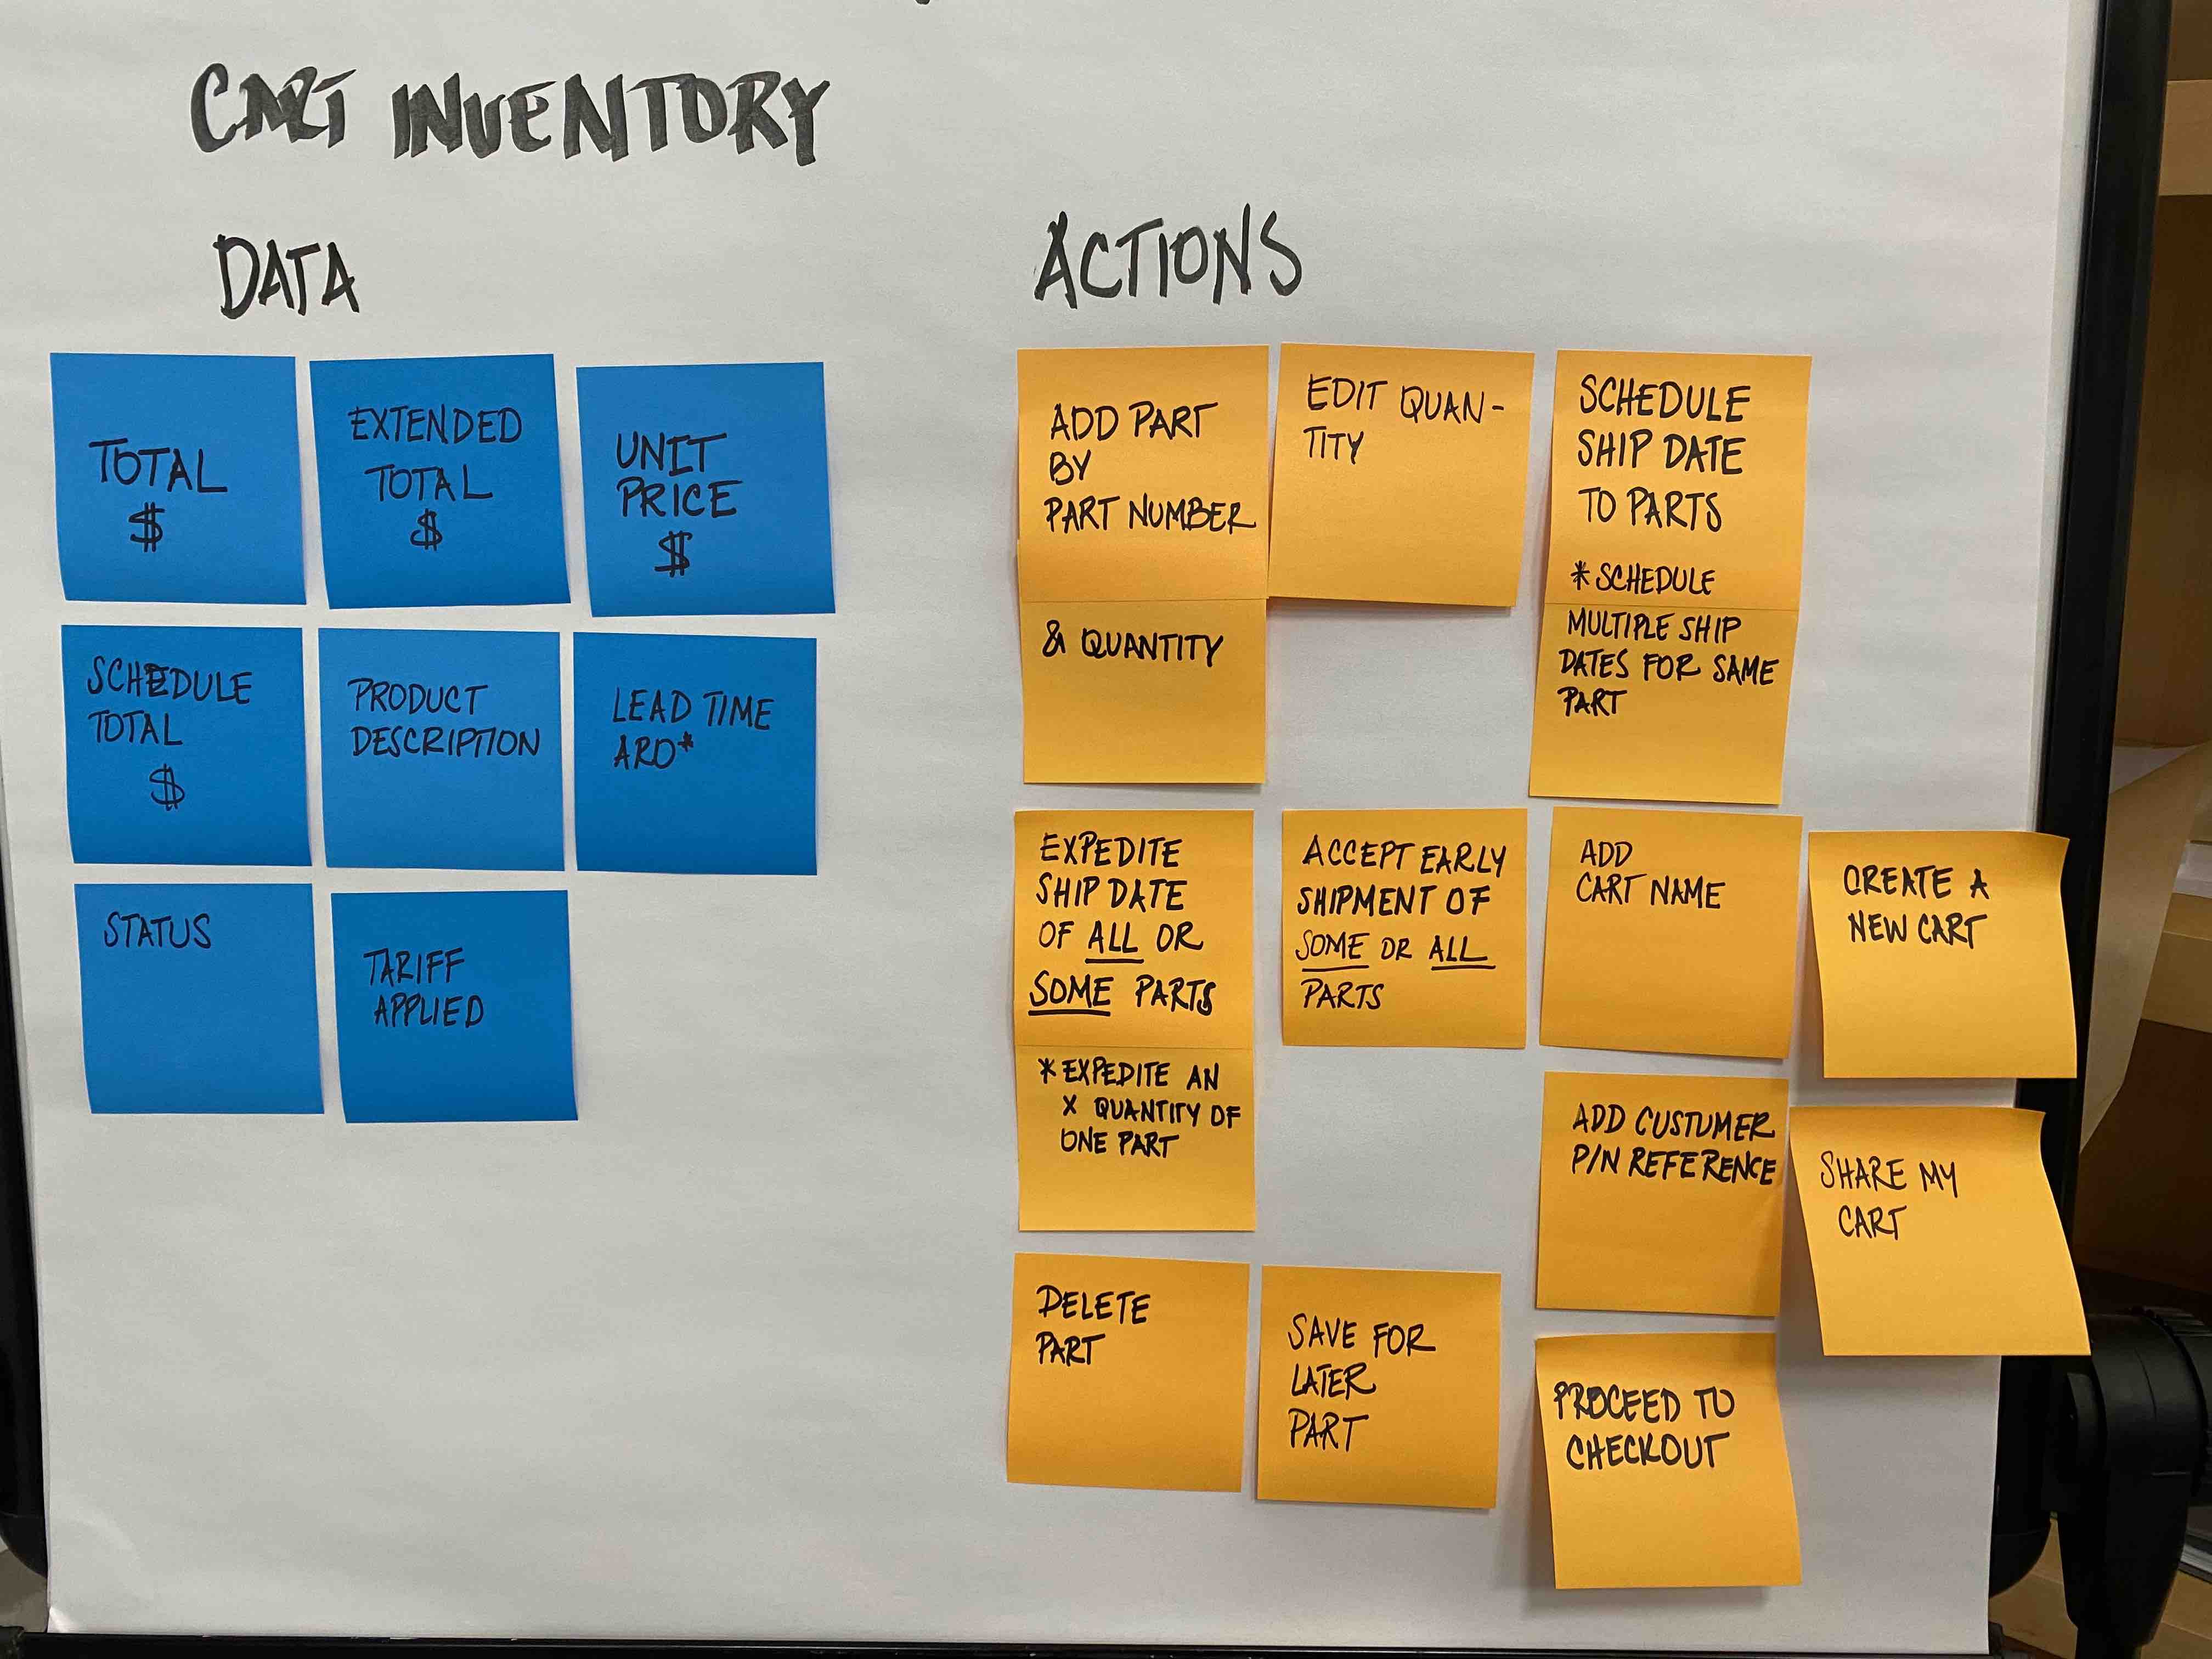 CART INVENTORY
DATA
TOTAL
$
EXTENDED
TOTAL
$
UNIT
PRICE
$
SCHEDULE
TOTAL
$
PRODUCT
DESCRIPTION
LEAD TIME
ARO*
STATUS
TARIFF
APPLIED
ACTIONS
ADD PART
BY
PART NUMBER
& QUANTITY
EDIT QUAN-
TITY
SCHEDULE
SHIP DATE
TO PARTS
* SCHEDULE
MULTIPLE SHIP
DATES FOR SAME
PART
EXPEDITE
SHIP DATE
OF ALL OR
SOME PARTS
* EXPEDITE AN
X QUANTITY OF
ONE PART
ACCEPT EARLY
SHIPMENT OF
SOME OR ALL
PARTS
ADD
CART NAME
CREATE A
NEW CART
ADD CUSTUMER
P/N REFERENCE
SHARE MY
CART
DELETE
PART
SAVE FOR
LATER
PART
PROCEED TO
CHECKOUT